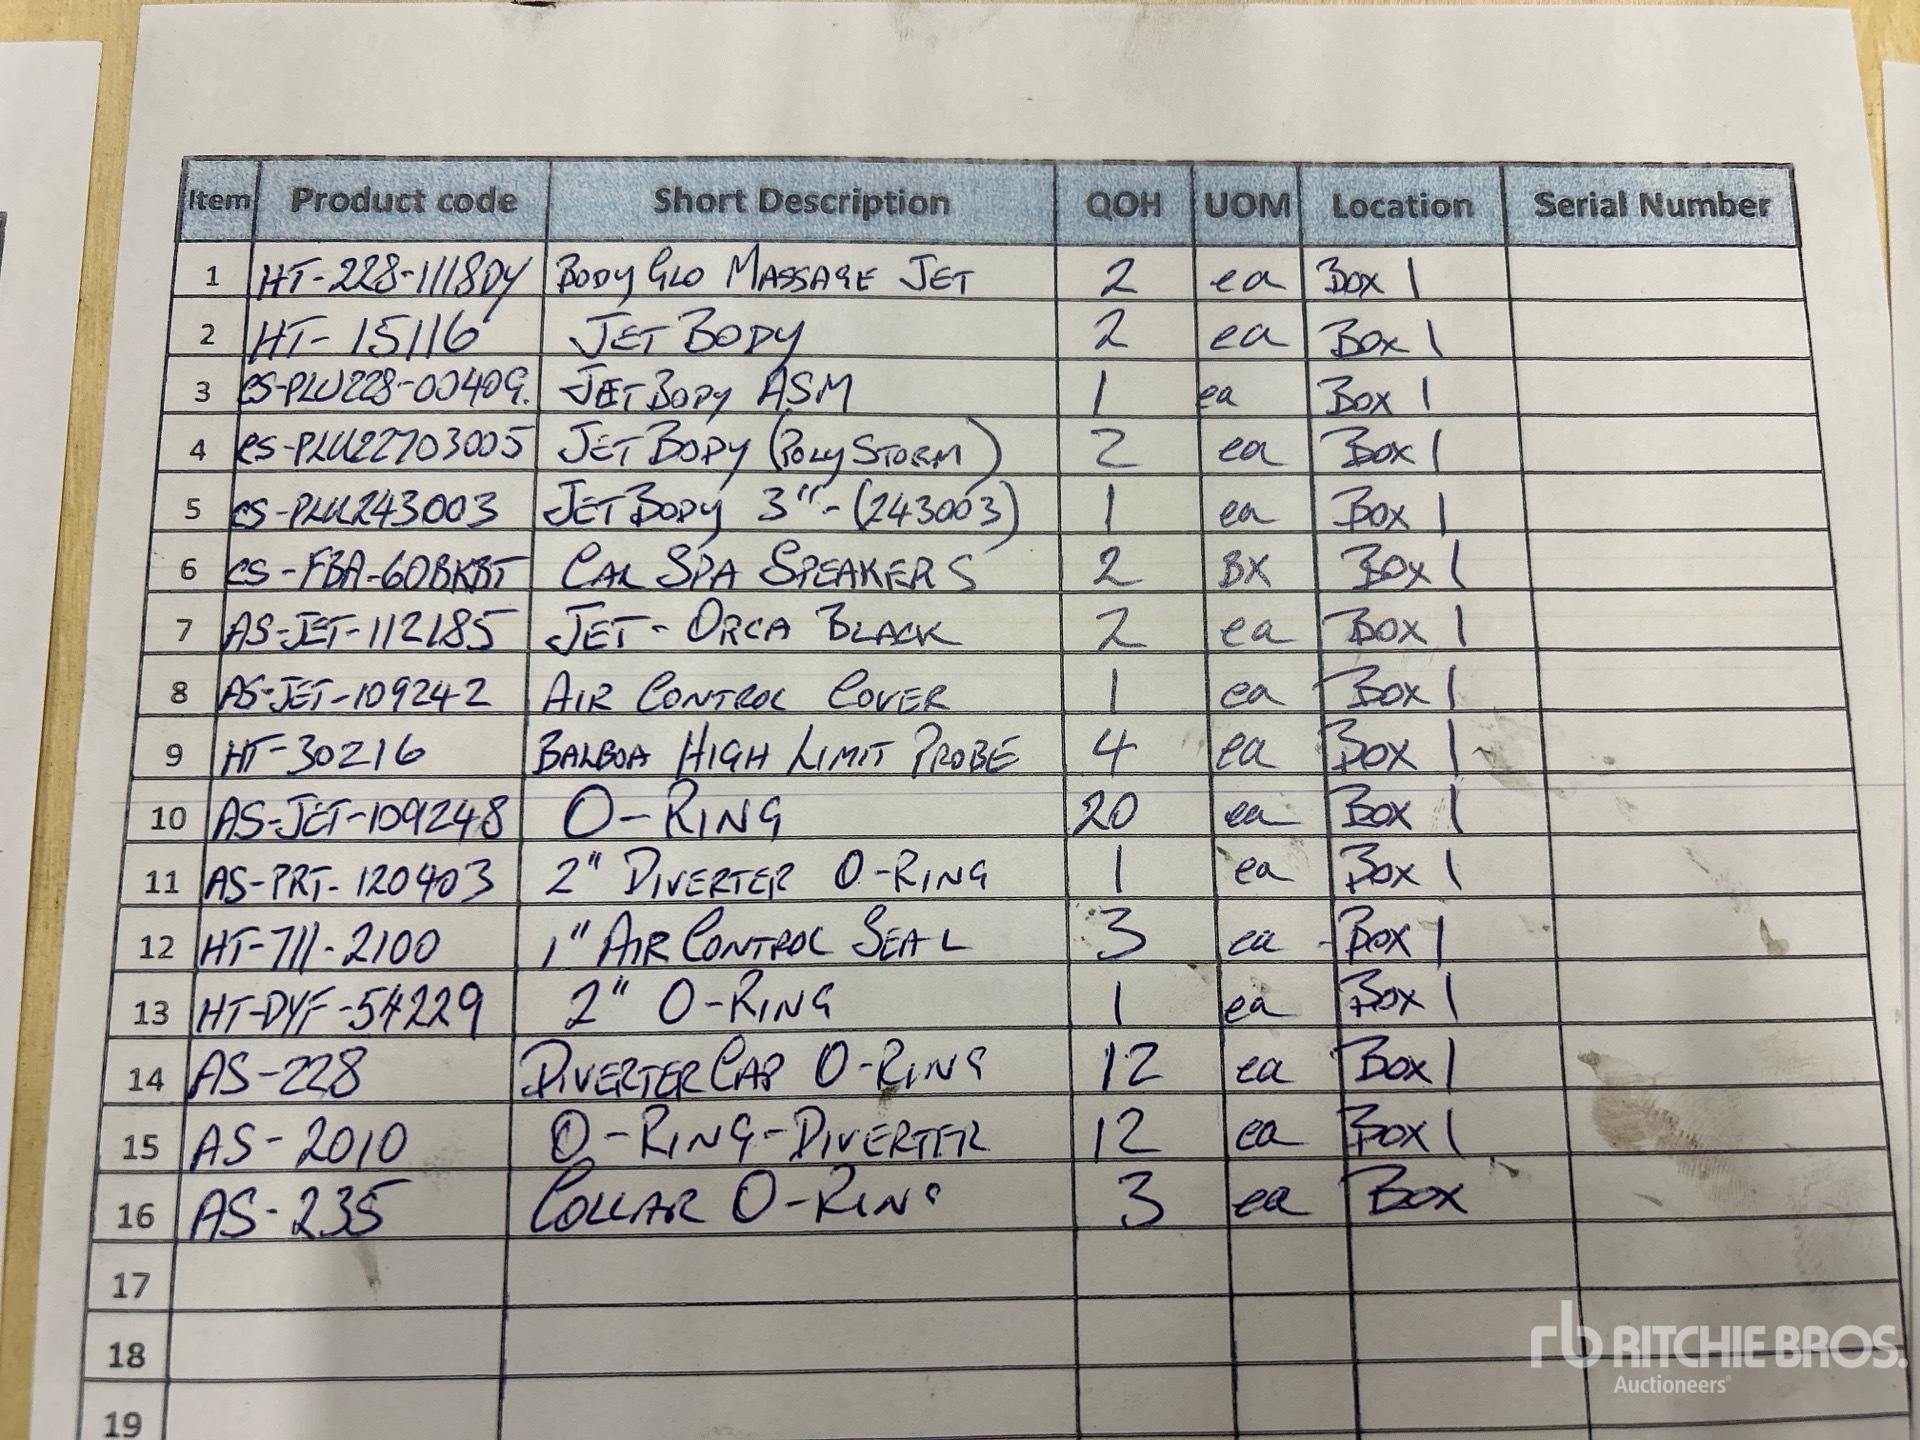 Item Product code Short Description QOH UOM Location Serial Number
1 HT-228-1118DY BODY GLO MASSAGE JET 2 ea Box 1
2 HT-15116 JET BODY 2 ea Box 1
3 CS-PLU228-00409. JET BODY ASM 1 ea Box 1
4 CS-PLU22703005 JET BODY (POLY STORM) 2 ea Box 1
5 CS-PLU243003 JET BODY 3"-(243003) 1 ea Box 1
6 CS-FBA-60BKBT CAL SPA SPEAKERS 2 BX Box 1
7 AS-JET-112185 JET-ORCA BLACK 2 ea Box 1
8 AS-JET-109242 AIR CONTROL COVER 1 ea Box 1
9 HT-30216 BALBOA HIGH LIMIT PROBE 4 ea Box 1
10 AS-JET-109248 O-RING 20 ea Box 1
11 AS-PRT-120403 2" DIVERTER O-RING 1 ea Box 1
12 HT-711-2100 1" AIR CONTROL SEAL 3 ea Box 1
13 HT-DYF-54229 2" O-RING 1 ea Box 1
14 AS-228 DIVERTER CAP O-RING 12 ea Box 1
15 AS-2010 O-RING-DIVERTER 12 ea Box 1
16 AS-235 COLLAR O-RING 3 ea Box
17
18
19
rb RITCHIE BROS.
Auctioneers